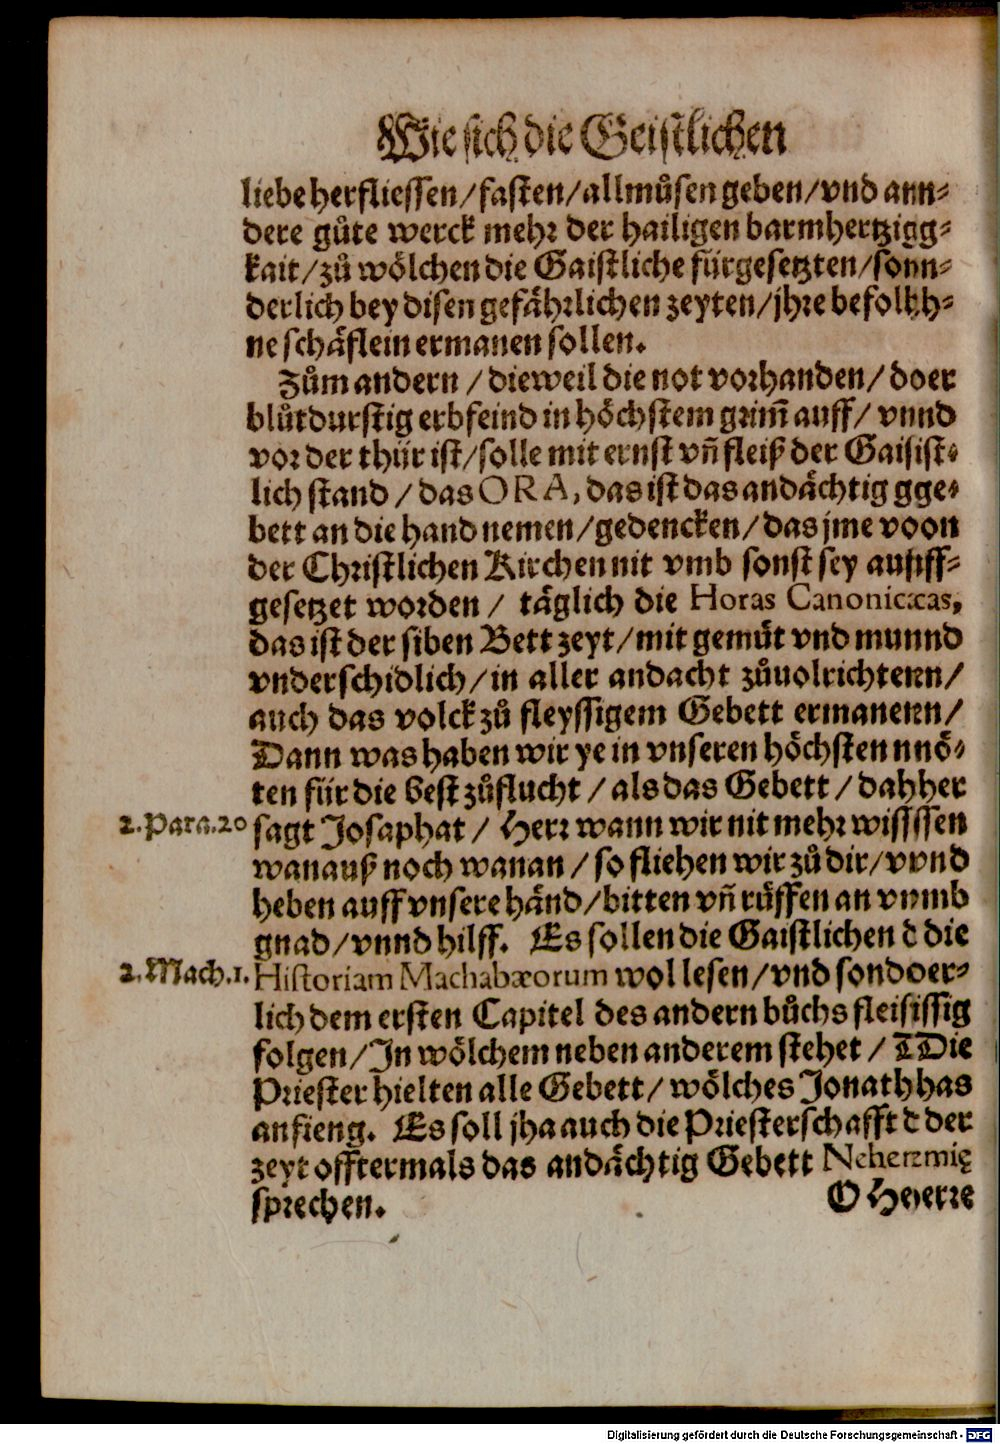 Wie sich die Geistlichen
liebe herfliessen/fasten/allmůsen geben/vnd ann-
dere gůte werck mehr der hailigen barmhertzigg-
kait/zů wölchen die Gaistliche fürgesetzten/sonn-
derlich bey disen gefährlichen zeyten/jhre befolhh-
ne schäflein ermanen sollen.
Zům andern / dieweil die not vorhanden/ doer
blůtdurstig erbfeind in höchstem grim̃ auff/ vnnd
vor der thür ist/solle mit ernst vñ fleiß der Gaisist-
lich stand / das ORA, das ist das andächtig gge-
bett an die hand nemen/gedencken/das jme voon
der Christlichen Kirchen nit vmb sonst sey aufiff-
gesetzet worden / täglich die Horas Canonicæcas,
das ist der siben Bett zeyt/mit gemüt vnd munnd
vnderschidlich/in aller andacht zůuolrichtenn/
auch das volck zů fleyssigem Gebett ermanenn/
Dann was haben wir ye in vnseren höchsten nnö-
ten für die best zůflucht / als das Gebett / dahher
2.Para.20 sagt Josaphat / Herr wann wir nit mehr wissssen
wanauß noch wanan / so fliehen wir zů dir/vvnd
heben auff vnsere händ/bitten vñ rüffen an vvmb
gnad/vnnd hilff. Es sollen die Gaistlichen d die
2.Mach.1. Historiam Machabæorum wol lesen/vnd sondoer-
lich dem ersten Capitel des andern bůchs fleisissig
folgen/In wölchem neben anderem stehet / DDie
Priester hielten alle Gebett/ wölches Jonathhas
anfieng. Es soll jha auch die Priesterschafft d der
zeyt offtermals das andächtig Gebett Nehemię
sprechen. O Heerre
Digitalisierung gefördert durch die Deutsche Forschungsgemeinschaft - DFG